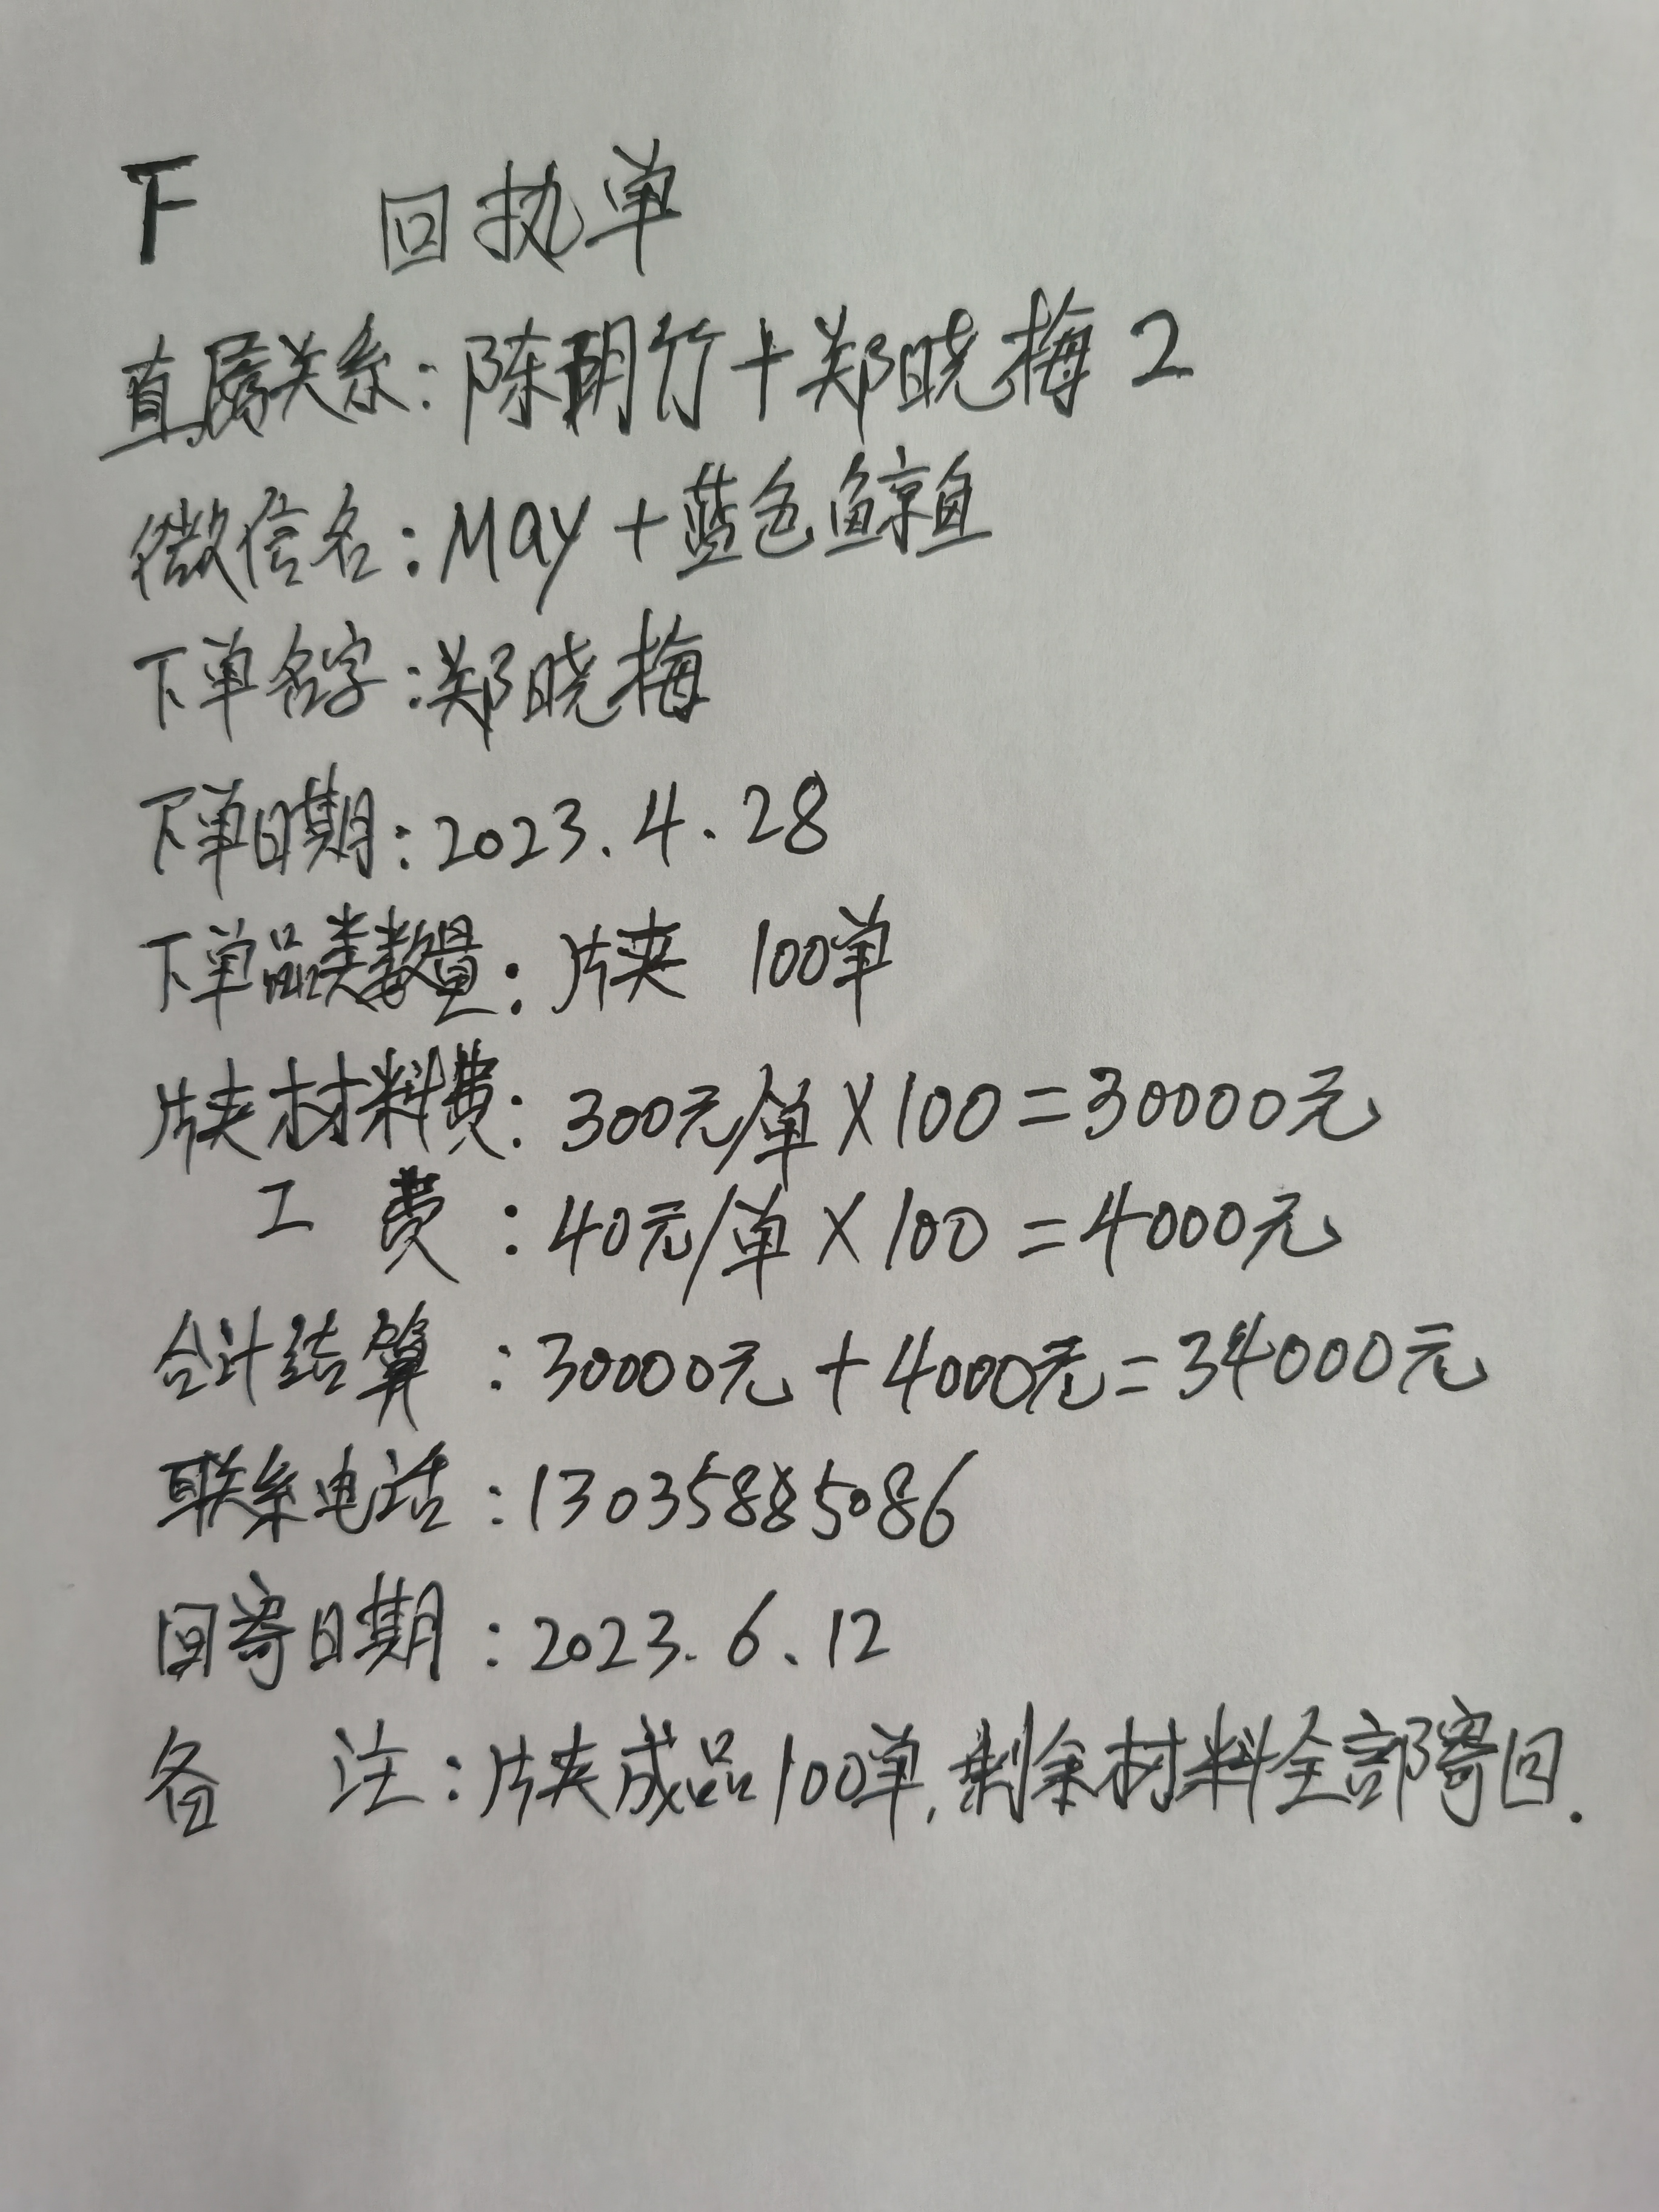 下 回执单
直属关系:陈明竹+郑晓梅 2
微信名:May+蓝色鲸鱼
下单名字:郑晓梅
下单日期:2023.4.28
下单品类数量:片夹 100单
片夹材料费:300元/单×100=30000元
工 费:40元/单×100=4000元
合计结算:30000元+4000元=34000元
联系电话:13035885086
回寄日期:2023.6.12
备 注:片夹成品100单,剩余材料全部寄回.